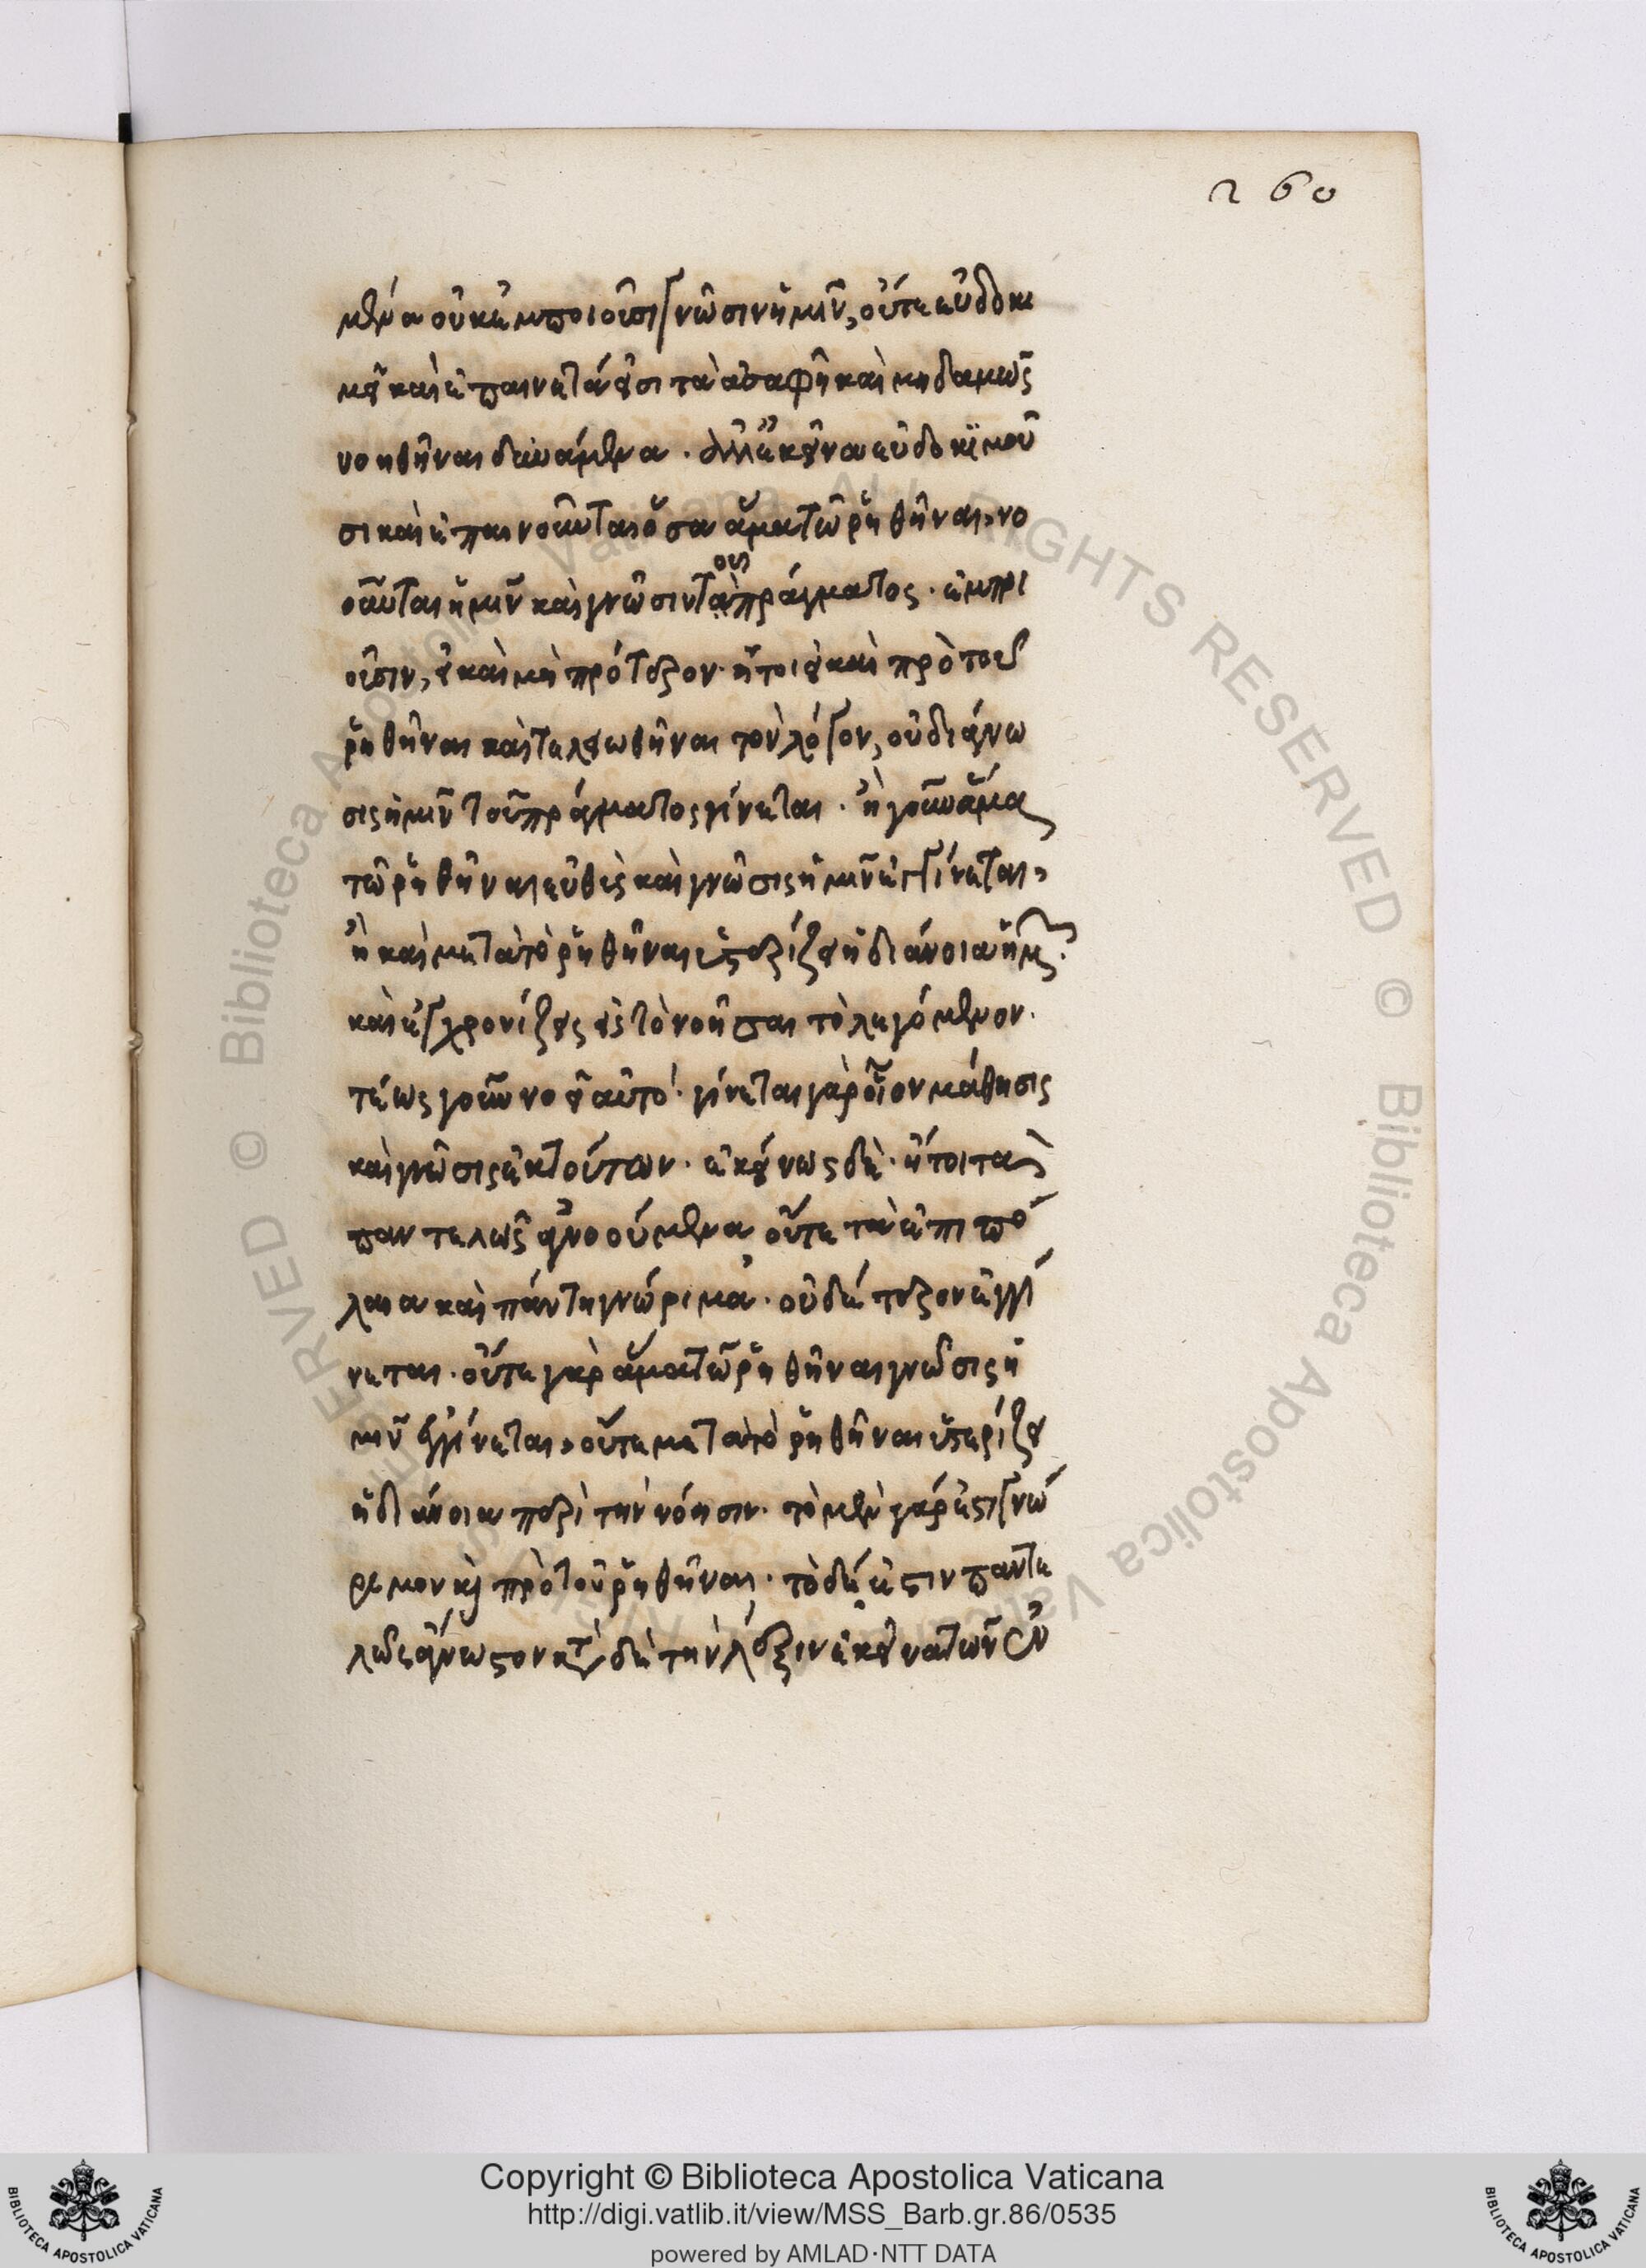 260
μενα οὐκ ἐμποιοῦσι γνῶσιν ἡμῖν, οὔτε εὐδοκι
μεῖ καὶ ἐπαινετά εἰσι τὰ ἀσαφῆ καὶ μηδαμῶς
νοηθῆναι δυνάμενα. ἀλλ' ἐκεῖνα εὐδοκιμοῦ
σι καὶ ἐπαινοῦνται ὅσα ἅμα τῷ ῥηθῆναι, νο
οῦνται ἡμῖν καὶ γνῶσιν τοῦ πράγματος. ἐμποι
οῦσιν, εἰ καὶ μὴ πρότερον. ἤτοι εἰ καὶ πρὸ τοῦ
ῥηθῆναι καὶ τελειωθῆναι τὸν λόγον, οὐ διάγνω
σις ἡμῖν τοῦ πράγματος γίνεται. ἢ γοῦν ἅμα
τῷ ῥηθῆναι εὐθὺς καὶ γνῶσις ἡμῖν ἐγγίνεται,
ἢ καὶ μετὰ τὸ ῥηθῆναι ὑστερίζει ἡ διάνοια ἡμῶν.
καὶ ἐγχρονίζει εἰς τὸ νοῆσαι τὸ λεγόμενον.
τέως γοῦν νοεῖ αὐτό. γίνεται γὰρ οἷον μάθησις
καὶ γνῶσις ἐκ τούτων. ἐκείνως δὲ. ἤτοι τὰ
παντελῶς ἀγνοούμενα οὔτε τὰ ἐπιπό
λαια καὶ πάντη γνώριμα. οὐδέτερον ἐγγί
νεται. οὔτε γὰρ ἅμα τῷ ῥηθῆναι γνῶσις ἡ
μῖν ἐγγίνεται, οὔτε μετὰ τὸ ῥηθῆναι ὑστερίζει
ἡ διάνοια περὶ τὴν νόησιν. τὸ μὲν γάρ ἐστι γνώ
ριμον καὶ πρὸ τοῦ ῥηθῆναι. τὸ δέ ἐστιν παντε
λῶς ἄγνωστον κατὰ δὲ τὴν λέξιν ἐκεῖνα τῶν ἐν
Copyright © Biblioteca Apostolica Vaticana
http://digi.vatlib.it/view/MSS_Barb.gr.86/0535
powered by AMLAD·NTT DATA
BIBLIOTECA APOSTOLICA VATICANA
BIBLIOTECA APOSTOLICA VATICANA